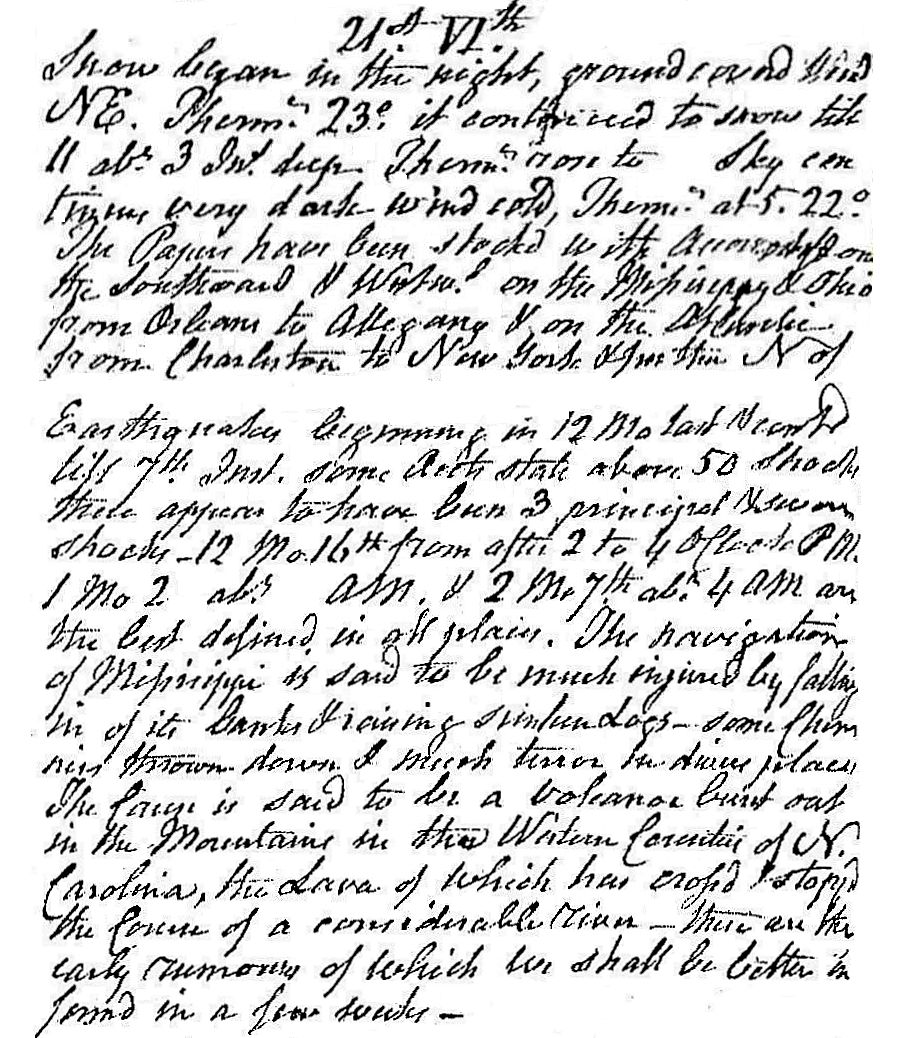 21st VIth
Snow began in the night, ground cover'd Wind
NE. Therm.r 23° it continued to snow till
11 abt 3 Ins. deep. Therm.r rose to Sky con
tinues very dark wind cold, Therm.r at 5. 22°
The Papers have been stocked with Accounts from
the Southward & Westw.d on the Missisippy & Ohio
from Orleans to Allegany & on the Atlantic
from Charleston to New York & further N of
Earthquakes beginning in 12 Mo last & cont'd
till 7th Inst. some Accts state above 50 Shocks
there appear to have been 3 principal & severe
shocks – 12 Mo 16th from after 2 to 4 OClock P M.
1 Mo 2 abt AM. & 2 Mo 7th abt 4 AM are
the best defined in all places. The navigation
of Missisippi is said to be much injured by falling
in of its banks & raising sunken Logs – some Chim
nies thrown down & much terror in divers places
The Cause is said to be a Volcanoe burst out
in the Mountains in the Western Counties of N.
Carolina, the Lava of which has cross'd & stop'd
the Course of a considerable River – these are the
early rumours of which we shall be better in
form'd in a few weeks –